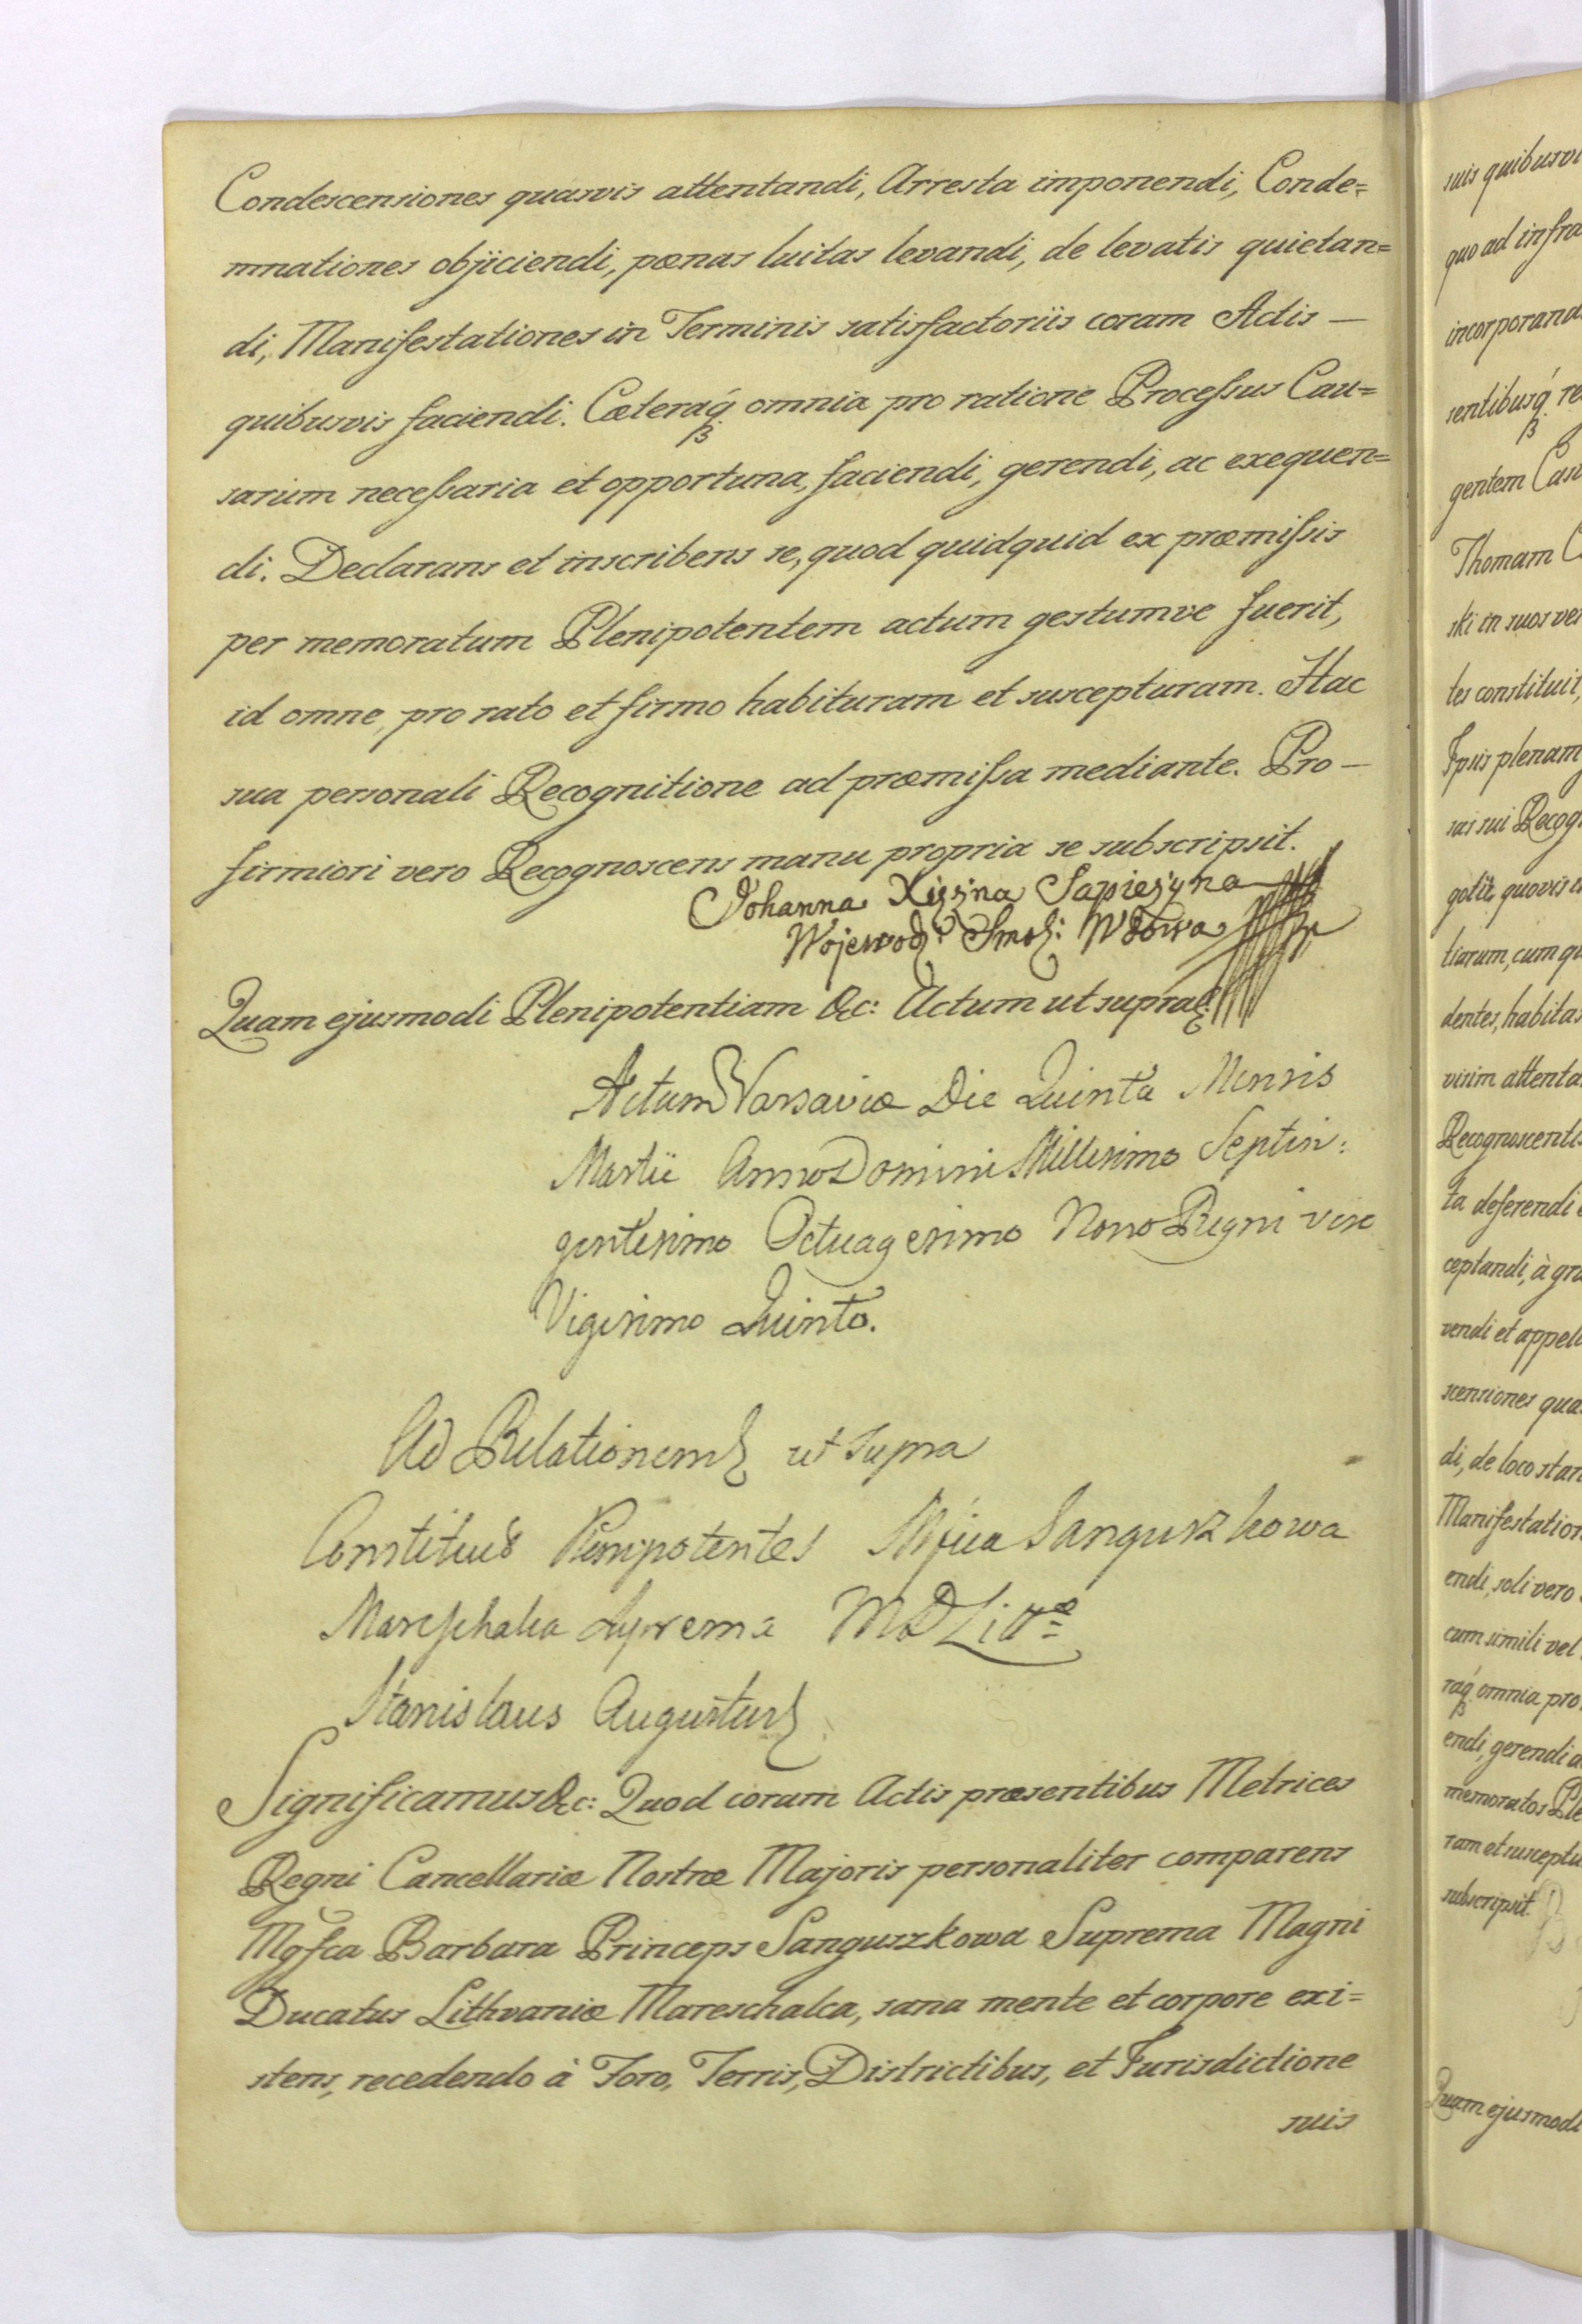 Condescensiones quasvis attentandi, Arresta imponendi, Conde=
mnationes objiciendi, pœnas luitas levandi, de levatis quietan=
di, Manifestationes in Terminis satisfactoriis coram Actis —
quibusvis faciendi. Cæteraq́ꝫ omnia pro ratione Processus Cau=
sarum necessaria et opportuna, faciendi, gerendi, ac exequen=
di. Declarans et inscribens se, quod quidquid ex præmissis
per memoratum Plenipotentem actum gestumve fuerit,
id omne, pro rato et firmo habituram et suscepturam. Hac
sua personali Recognitione ad præmissa mediante. Pro —
firmiori vero Recognoscens manu propria se subscripsit.
Johanna Xiężna Sapiezyna
Wojewodz: Smol: Wdowa
Quam ejusmodi Plenipotentiam &c: Actum ut supra
Actum Varsaviæ Die Quinta Mensis
Martii Anno Domini Millesimo Septin:
gentesimo Octuagesimo Nono Regni vero
Vigesimo Quinto.
Ad Relationem ut supra
Constituit Plenipotentes Mfica Sanguszkowa
Mareschalca Suprema MDLittæ
Stanislaus Augustus
Significamus &c: Quod coram Actis præsentibus Metrices
Regni Cancellariæ Nostræ Majoris personaliter comparens
Mgfca Barbara Princeps Sanguszkowa Suprema Magni
Ducatus Lithvaniæ Mareschalca, sana mente et corpore exi=
stens, recedendo à Foro, Terris, Districtibus, et Jurisdictione
suis
suis quibusvi
quo ad infra
incorporana
sentibusq́ꝫ re
gentem Cau
Thomam C
ski in suos ver
tes constituit,
Ipsis plenam
sas sui Recog
gotiis quovis
tiarum, cum qu
dentes, habitas
visim attenta
Recognoscentis
ta deferendi
ceptandi, à gra
vendi et appell
scensiones qua
di, de loco stan
Manifestation
endi, soli vero
cum simili vel
raq́ꝫ omnia pro
endi, gerendi a
memoratos Ple
ram et susceptu
subscripsit.
Quam ejusmodi